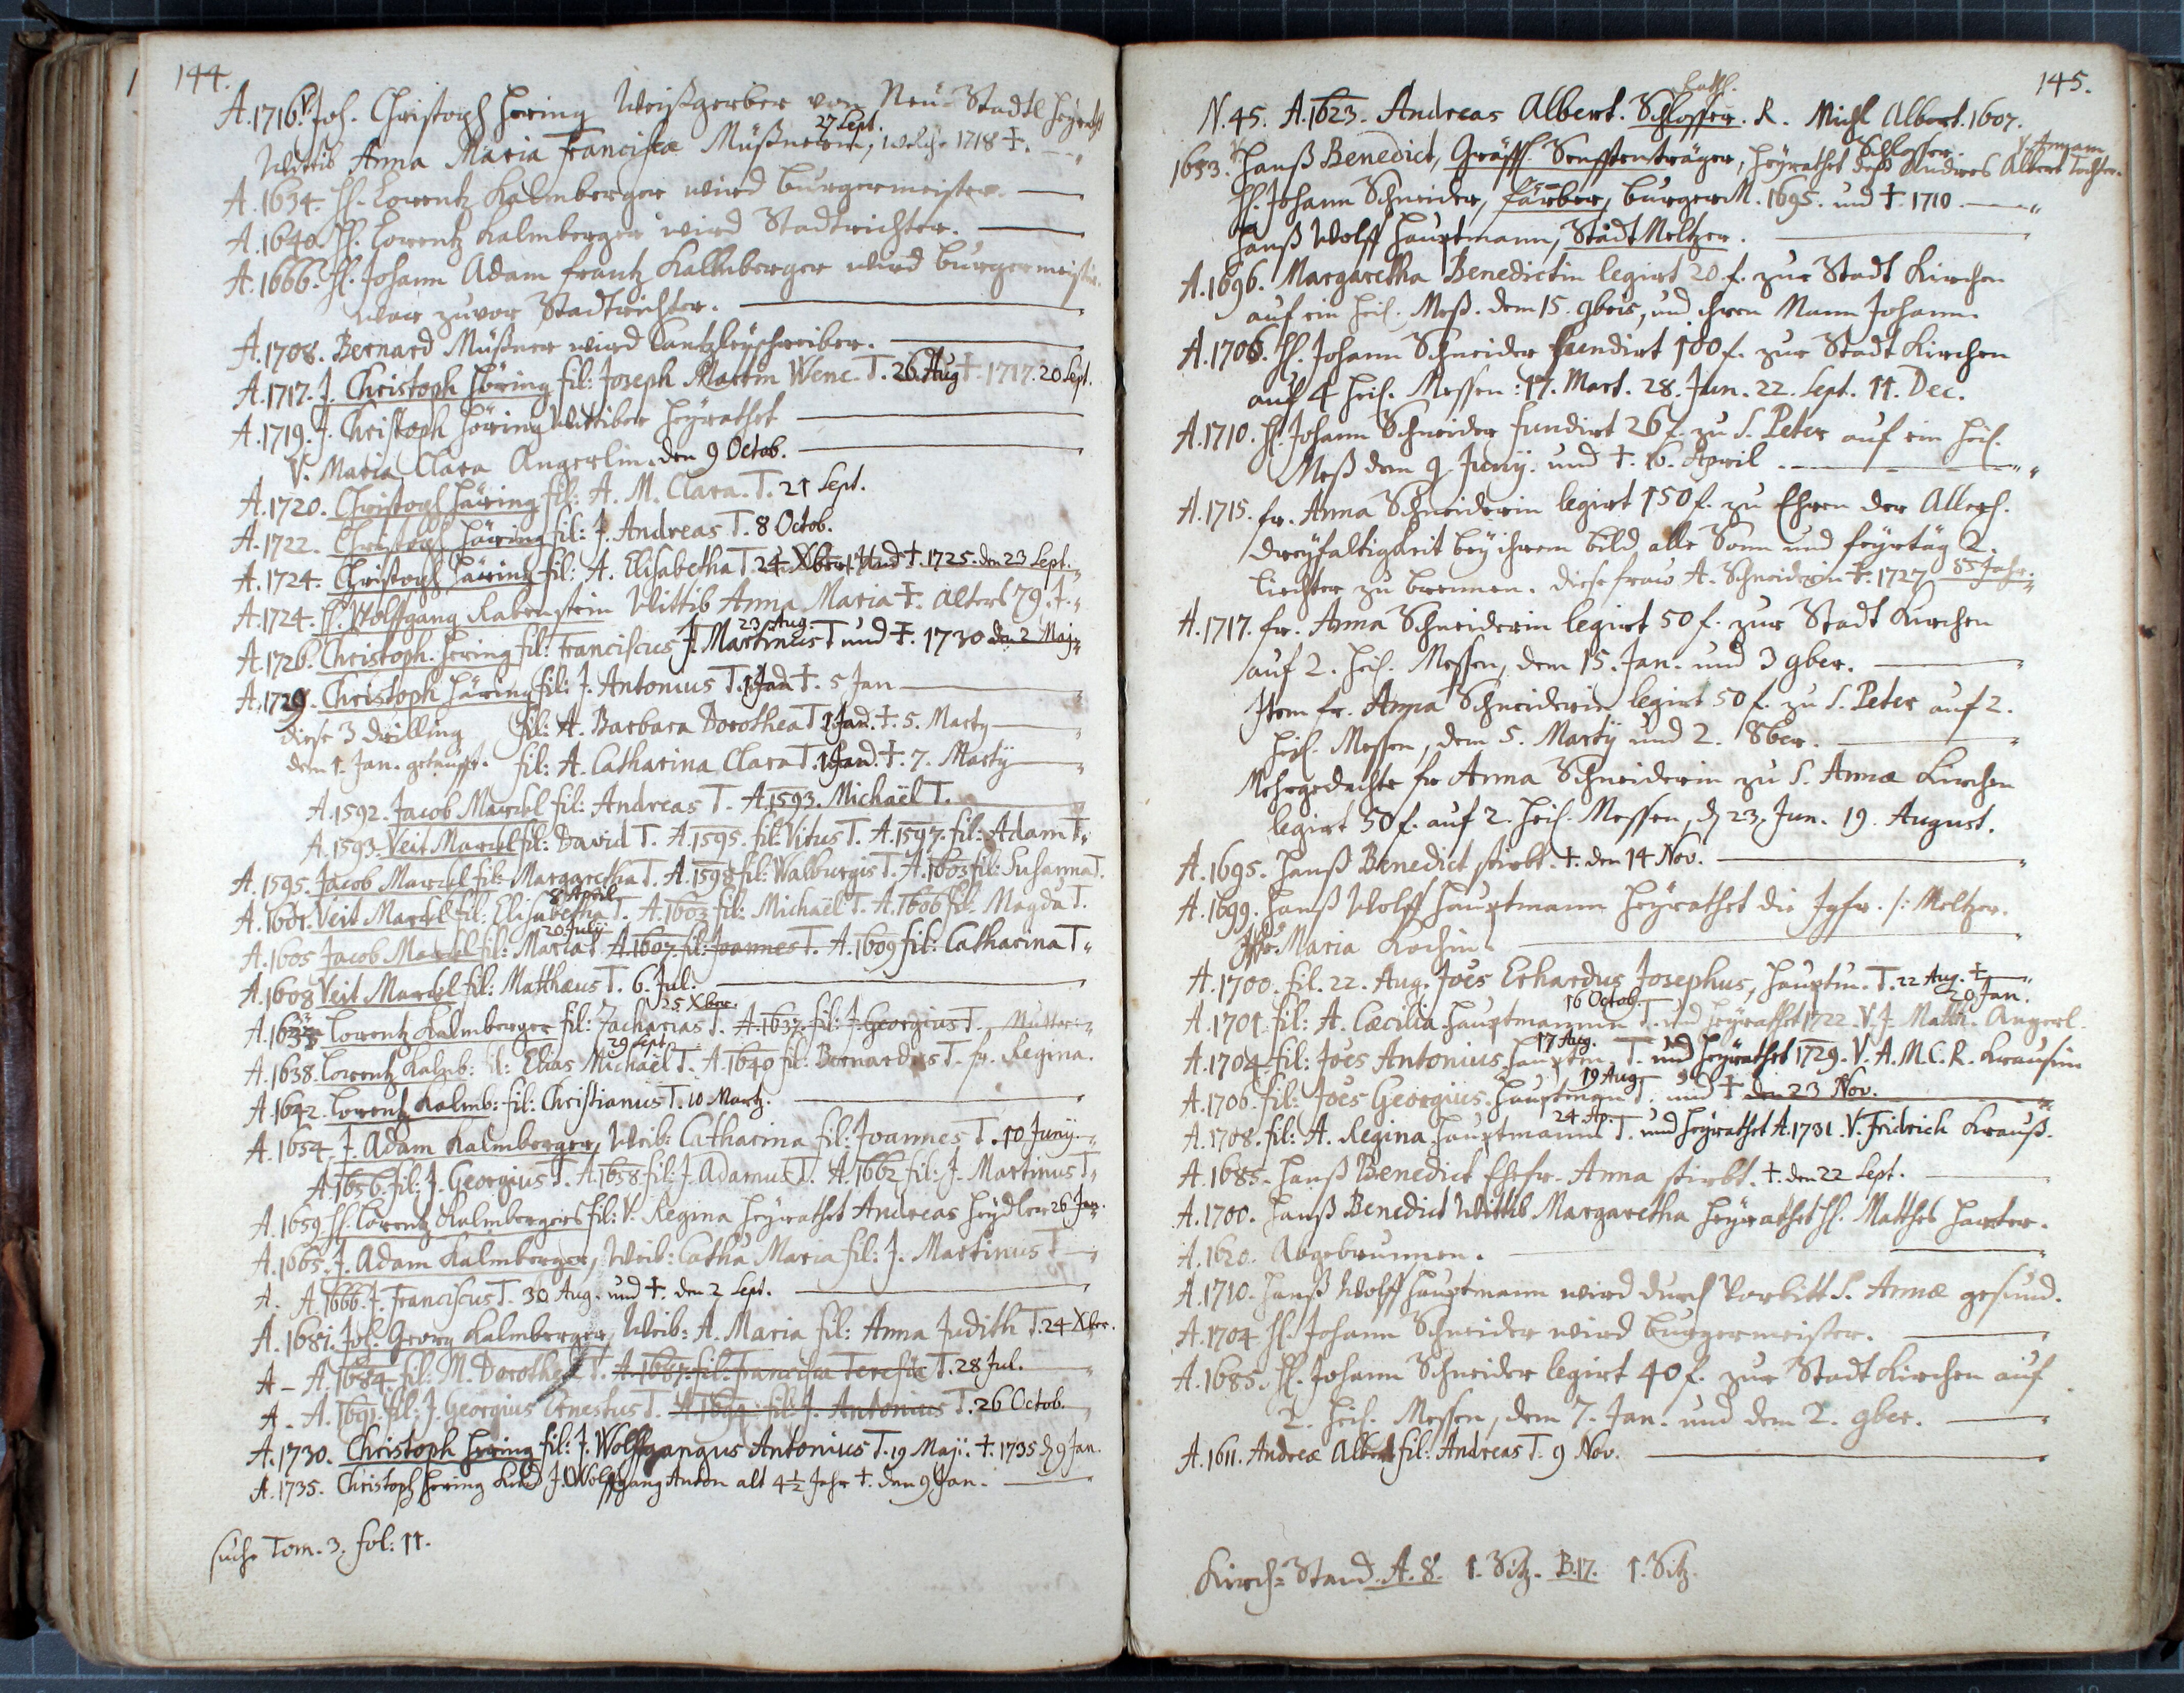 144.
A. 1716. V. Joh. Christoph Hering Weißgerber von Neu-Stadtl heyrath
Wittib Anna Maria Francisca Müßnerin, 27 Sept. welche 1718 †.
A. 1634. H. Lorentz Kalmberger wird Burgermeister.
A. 1640. H. Lorentz Kalmberger wird Stadtrichter.
A. 1666. H. Johann Adam Frantz Kallmberger wird Burgermeister.
war zuvor Stadtrichter.
A. 1708. Bernard Müßner wird Cantzleyschreiber.
A. 1717. J. Christoph Höring fil: Joseph Martin Wenc. T. 26. Aug † 1717. 20 Sept.
A. 1719. J. Christoph Höring Wittiber heyrathet
V. Maria Clara Angerlin. den 9 Octob.
A. 1720. Christoph Häring fil: A. M. Clara. T. 21 Sept.
A. 1722. Christoph Häring fil: J. Andreas T. 8 Octob.
A. 1724. Christoph Häring fil: A. Elisabetha T. 24. Xber. Und †. 1725. den 23 Sept.
A. 1724. H. Wolffgang Rabenstein Wittib Anna Maria †. Alters 79. J.
A. 1726. Christoph Hering fil: Franciscus J. Martinus T 23 Aug. und †. 1730 den 2 Maj.
A. 1729. Christoph Häring fil: J. Antonius T. 1 Jan †. 5 Jan
diese 3 Drilling fil: A. Barbara Dorothea T 1 Jan. †. 5. Marty
dem 1. Jan. getaufft. fil: A. Catharina Clara T. 1 Jan. †. 7. Martÿ
A. 1592. Jacob Mardel fil: Andreas T. A. 1593. Michaël T.
A. 1593. Veit Mardel fil: David T. A. 1595. fil: Vitus T. A. 1597. fil: Adam T.
A. 1595. Jacob Mardel fil: Margaretha T. A. 1598 fil: Walburgis T. A. 1603 fil: Susanna T.
A. 1601. Veit Mardel fil: Elisabetha T. 8 April A. 1603 fil: Michaël T. A. 1606 fil. Magda T.
A. 1605 Jacob Mardel fil: Maria T. 20 July A. 1607. fil: Joannes T. A. 1609 fil: Catharina T
A. 1608 Veit Mardel fil: Matthæus T. 6. Jul:
Lorentz Kalmberger fil: Zacharias T. 25 Xber. A. 1637. fil: J. Georgius T.
A. 1638. Lorentz Kalmb: fil: Elias Michaël T. 29 Sept. A. 1640 fil: Bernardus T. fr. Regina.
A. 1642. Lorentz Kalmb: fil: Christianus T. 10 Martz.
A. 1654. J. Adam Kalmberger, Weib: Catharina fil: Joannes T. 10 Junÿ.
A. 1656. fil: J. Georgius T. A. 1658 fil: J. Adamus T. A. 1662 fil: J. Martinus T
A. 1659 H. Lorentz Kalmbergers fil: V. Regina heyrathet Andreas Heydler 26 Jan.
A. 1665. J. Adam Kalmberger, Weib: Catha Maria fil: J. Martinus T
A. A. 1666. J. Franciscus T. 30 Aug. und †. den 2 Sept.
A. 1681. Joh. Georg Kalmberger, Weib: A. Maria fil: Anna Judith T. 24 Xber.
A - A. 1684. fil: M. Dorothea T. A. 1687. fil. Francisca Teresia T. 28 Jul.
A - A. 1691. fil: J. Georgius Ernestus T. A. 1694. fil: J. Antonius T. 26 Octob.
A. 1730. Christoph Hering fil: J. Wolffgangus Antonius T. 19 Maji. †. 1735 d 9 Jan.
A. 1735. Christoph Hering Kind J. Wolffgang Anton alt 4½ Jahr †. den 9 Jan.
suche Tom. 3. fol: 11.
145.
N. 45. A. 1623. Andreas Albert. Schlosser. R. Michl Albert. 1607.
Schlosser.
1653. Hanß Benedict, Gräffl. Senfftenträger, heyrathet deß Andres Albert Tochter.
H. Johann Schneider, Färber, BurgerM. 1695. und †. 1710.
Hanß Wolff Hauptmann, Stadt Meltzer.
A. 1696. Margaretha Benedictin legirt 20 f. zur Stadt Kirchen
auf ein Heil. Meß. dem 15. 9bris, und ihren Mann Johann.
A. 1706. H. Johann Schneider fundirt 100 f. zur Stadt Kirchen
auf 4 Heil. Messen: 17. Mart. 28. Jun. 22. Sept. 11. Dec.
A. 1710. H. Johann Schneider fundirt 26 f. zu S. Peter auf ein Heil.
Meß dem 9 Junÿ. und †. 16. April.
A. 1715. fr. Anna Schneiderin legirt 150 f. zu Ehren der Allerh.
Dreyfaltigkeit bey ihrem bild alle Sonn und feyrtäg 2.
Liechter zu brennen. diese fraw A. Schneiderin †. 1727 85 Jahr.
A. 1717. fr. Anna Schneiderin legirt 50 f. zur Stadt Kirchen
auf 2. Heil. Messen, dem 15. Jan. und 3 9ber.
Item fr. Anna Schneiderin legirt 50 f. zu S. Peter auf 2.
Heil. Messen, dem 5. Martÿ und 2. 8ber.
Mehrgedachte fr Anna Schneiderin zu S. Annæ Kirchen
legirt 50 f. auf 2. Heil. Messen, d 23. Jun. 19. August.
A. 1695. Hanß Benedict stirbt. †. den 14 Nov.
A. 1699. Hanß Wolff Hauptmann heyrathet die Jgfr. /: Meltzer.
Maria Kochin.
A. 1700. fil. 22. Aug. Joës Erhardus Josephus, Hauptm. T. 22 Aug. †
A. 1701. fil: A. Cæcilia Hauptmannin T. 16 Octob. und heyrathet 1722. 20 Jan. V. J. Matth. Angerl.
A. 1704. fil: Joës Antonius Hauptm. T. 17 Aug. und heyrathet 1729. V. A. M. C. R. Krausin
A. 1706. fil: Joës Georgius Hauptman T. 19 Aug. und † den 23 Nov.
A. 1708. fil: A. Regina Hauptmann T. 24 Ap. und heyrathet A. 1731. V. Fridrich Krauß.
A. 1685. Hanß Benedict Ehefr. Anna stirbt. †. den 22 Sept.
A. 1700. Hanß Benedict Wittib Margaretha heyrathet H. Matthes Harter.
A. 1620. Abgebrunnen.
A. 1710. Hanß Wolff Hauptmann wird durch Vorbitt S. Annæ gesund.
A. 1704 H. Johann Schneider wird Burgermeister.
A. 1685. H. Johann Schneider legirt 40 f. zur Stadt Kirchen auf
2. Heil. Messen, dem 7. Jan. und dem 2. 9ber.
A. 1611. Andreæ Albert fil: Andreas T. 9 Nov.
Kirch=Stand. A. 8. 1. Sitz. B. 17. 1. Sitz.